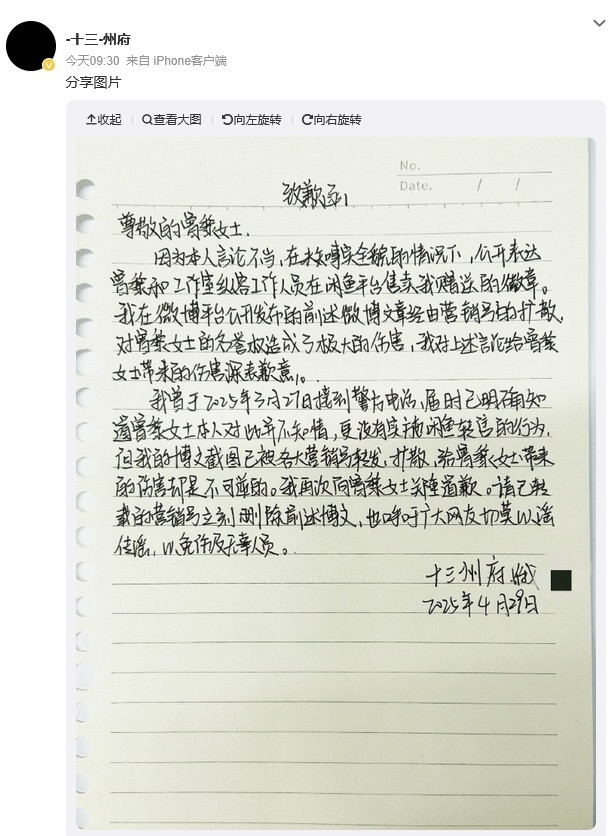 -十三-州府
今天09:30 来自 iPhone客户端
分享图片
收起 查看大图 向左旋转 向右旋转
No.
Date. / /
致歉函
尊敬的曾黎女士，
因为本人言论不当，在故事完全编的情况下，公开表达
曾黎和工作室纵容工作人员在闲鱼平台售卖我赠送的徽章。
我在微博平台公开发布的前述微博文章经由营销号的扩散，
对曾黎女士的名誉权造成了极大的伤害，我对上述言论给曾黎
女士带来的伤害深表歉意。
我曾于2025年3月27日接到警方电话，届时已明确知
道曾黎女士本人对此并不知情，更没有实施闲鱼转售的行为，
但我的博文截图已被各大营销号转发，扩散，给曾黎女士带来
的伤害却是不可逆的。我再次向曾黎女士关隆道歉。请已转
载的营销号立刻删除前述博文，也呼吁广大网友切莫以谣
传谣，以免伤及无辜人员。
十三州府
2025年4月29日